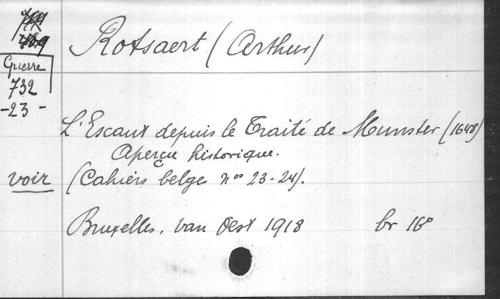 Rotsaert (Arthur)
Guerre
732
-23-
L'Escaut depuis le Traité de Munster (1648)
Aperçu historique.
voir (Cahiers belges nos 23-24).
Bruxelles, van Oest 1918 br 16°